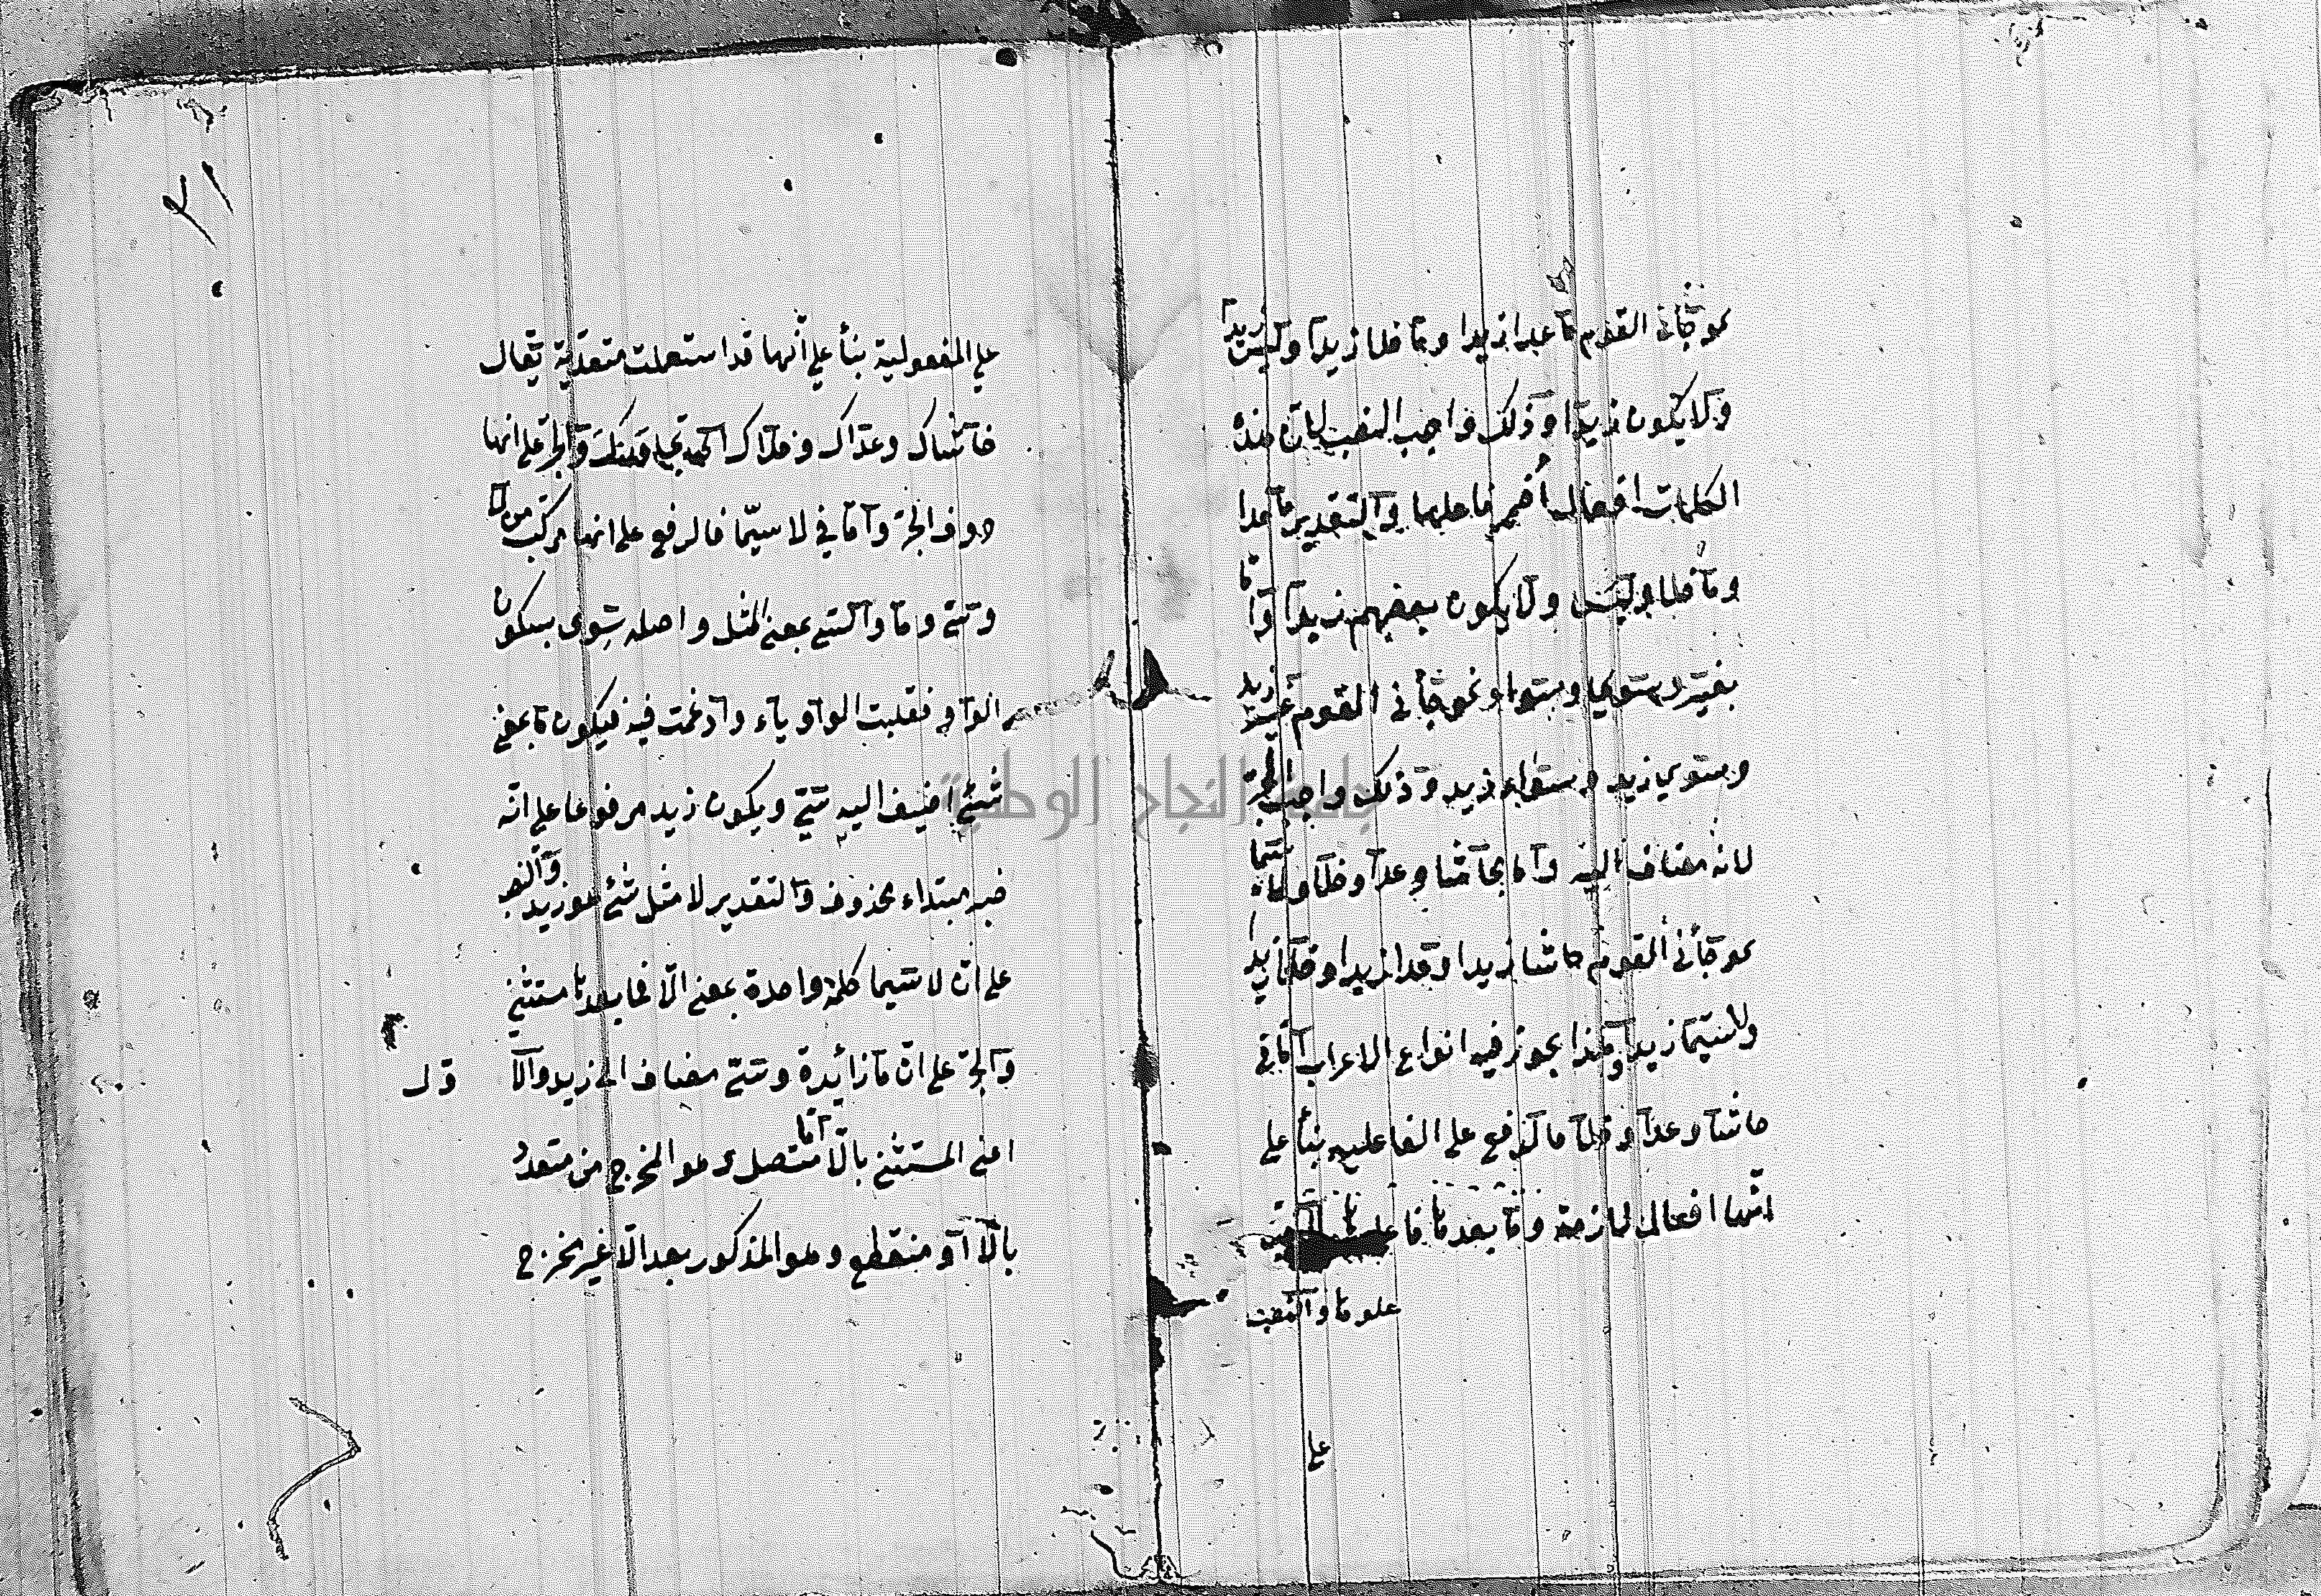 نحو جٓاني القوم مٓا عدا زيدا ومٓا خلا زيدا وليس زيدا
ولا يكون زيدا وذلك واجب النصب لان هذه
الكلمات افعال أضمر فاعلها والتقدير ما عدا
ومٓا خلا وليس ولا يكون بعضهم زيدا واما
بغير وسوى وسواء نحو جٓأني القوم غير زيد
وسوى زيد وسواء زيد وذلك واجب الجر
لانه مضاف اليه واما بحاشا وعدا وخلا ولا سيما
نحو جٓأني القوم حاشا زيدا وعدا زيدا وخلا زيدا
ولا سيما زيدا وهذا يجوز فيه انواع الاعراب امّا في
حاشا وعدا وخلا فالرفع على الفاعلية بنأ على
انّها افعال لازمة وما بعدها فاعلها
علوها والنصب
على
٢١
على المفعولية بنأ على أنّها قد استعملت متعدّية يقال
حاشاك وعداك وخلاك والجرّ على انها
حروف الجرّ وامّا في لا سيّما فالرفع على انها مركب من لا
وسيّ وما والسيّ بمعنى المثل واصله سوى بسكون
الواو فقلبت الواو ياء وادغمت فيه فيكون ما بمعنى
شئ اضيف اليه سيّ ويكون زيد مرفوعا على انّه
خبر مبتداء محذوف والتقدير لا مثل شئ هو زيد والنصب
على انّ لا سيما كلمة واحدة بمعنى الّا فما بعدها مستثنى
والجرّ على انّ ما زائدة وسيّ مضاف الى زيد والّا
قول
اعنى المستثنى بالّا امّا متصل وهو المخرج من متعدد
بالّا او منقطع وهو المذكور بعد الّا غير مخرج
جامعة النجاح الوطنية